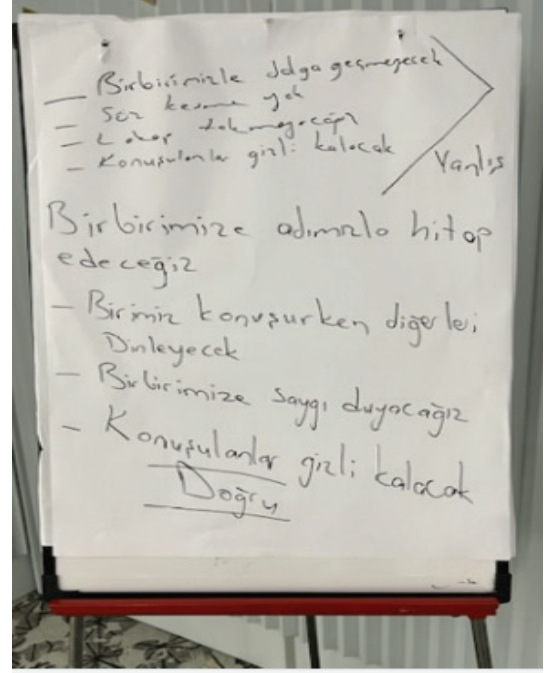 Birbirimizle dalga geçmeyecek
— Söz kesme yok
— Lakap takmayacağız
— Konuşulanlar gizli kalacak
Yanlış
Birbirimize adımızla hitap
edeceğiz
— Birimiz konuşurken diğerleri
Dinleyecek
— Birbirimize saygı duyacağız
— Konuşulanlar gizli kalacak
Doğru